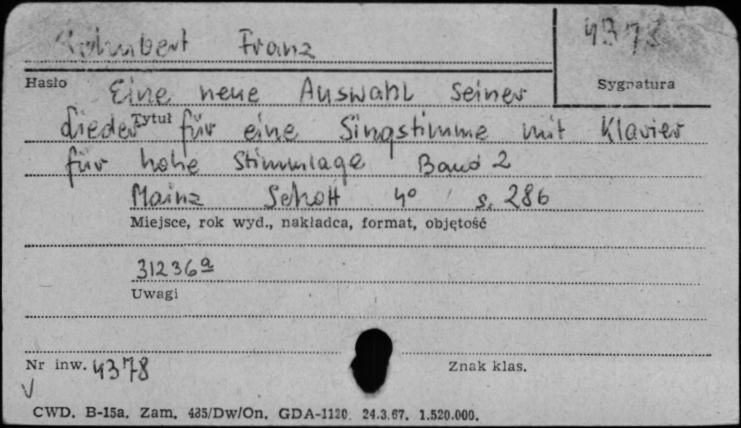 Schubert Franz 4378
Hasło Eine neue Auswahl seiner Sygnatura
Tytuł Lieder für eine Singstimme mit Klavier
für hohe Stimmlage Band 2
Mainz Schott 4° s. 286
Miejsce, rok wyd., nakładca, format, objętość
31236a
Uwagi
Nr inw. 4378 Znak klas.
CWD. B-15a. Zam. 435/Dw/On. GDA-1120. 24.3.67. 1.520.000.